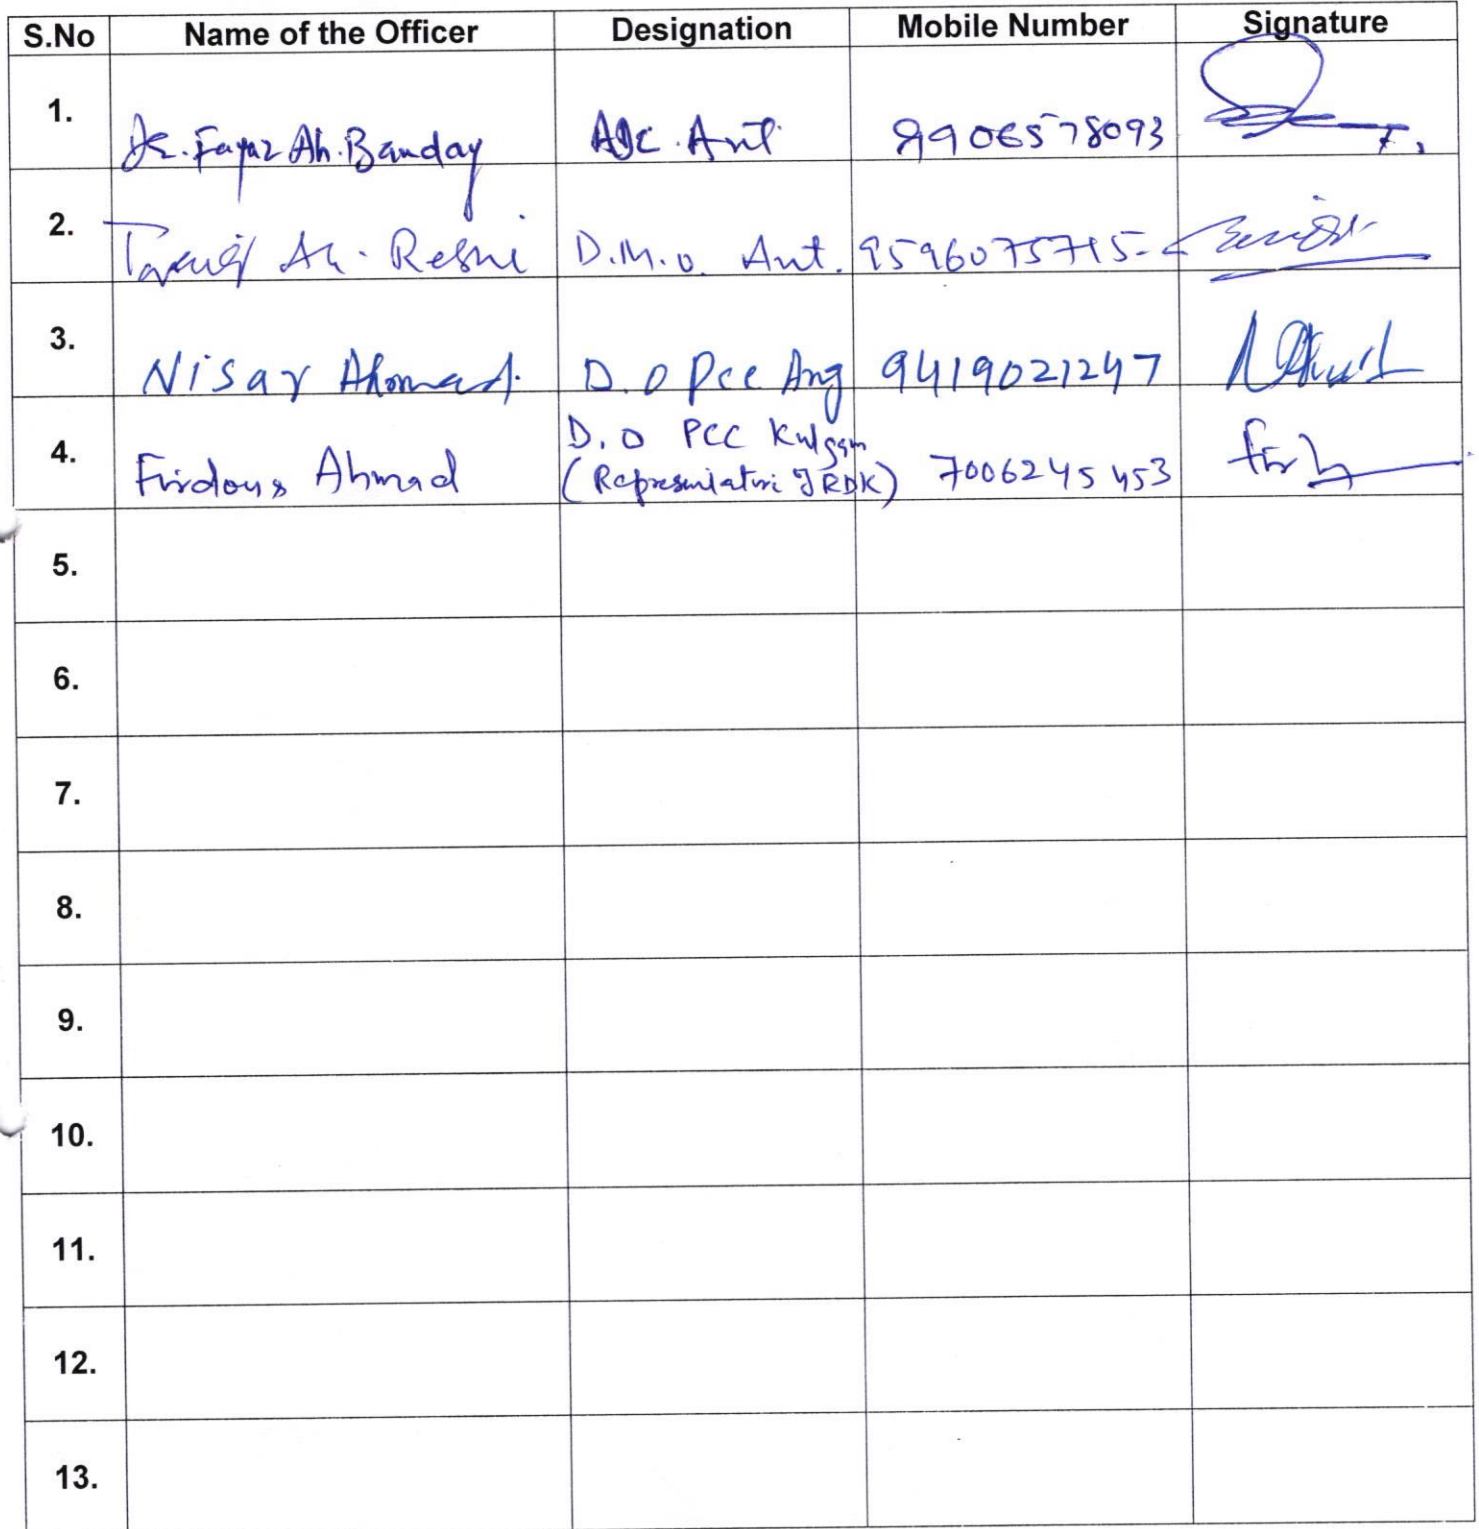 S.No Name of the Officer Designation Mobile Number Signature
1. Dr. Fayaz Ah. Banday ADC. Ant 9906578093
2. Ah. Reshi D.M.O. Ant. 9596075715
3. Nisar Ahmad. D.O PCC Ang 9419021247
4. Firdous Ahmad D.O PCC Kulgam
(Representative JRDK) 7006245453
5.
6.
7.
8.
9.
10.
11.
12.
13.